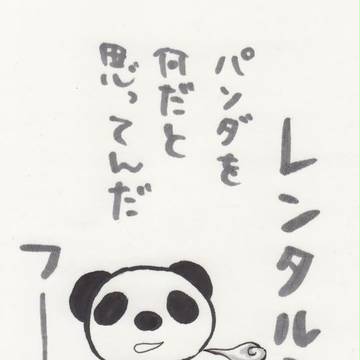 レンタル
パンダを
何だと
思ってんだ
フー